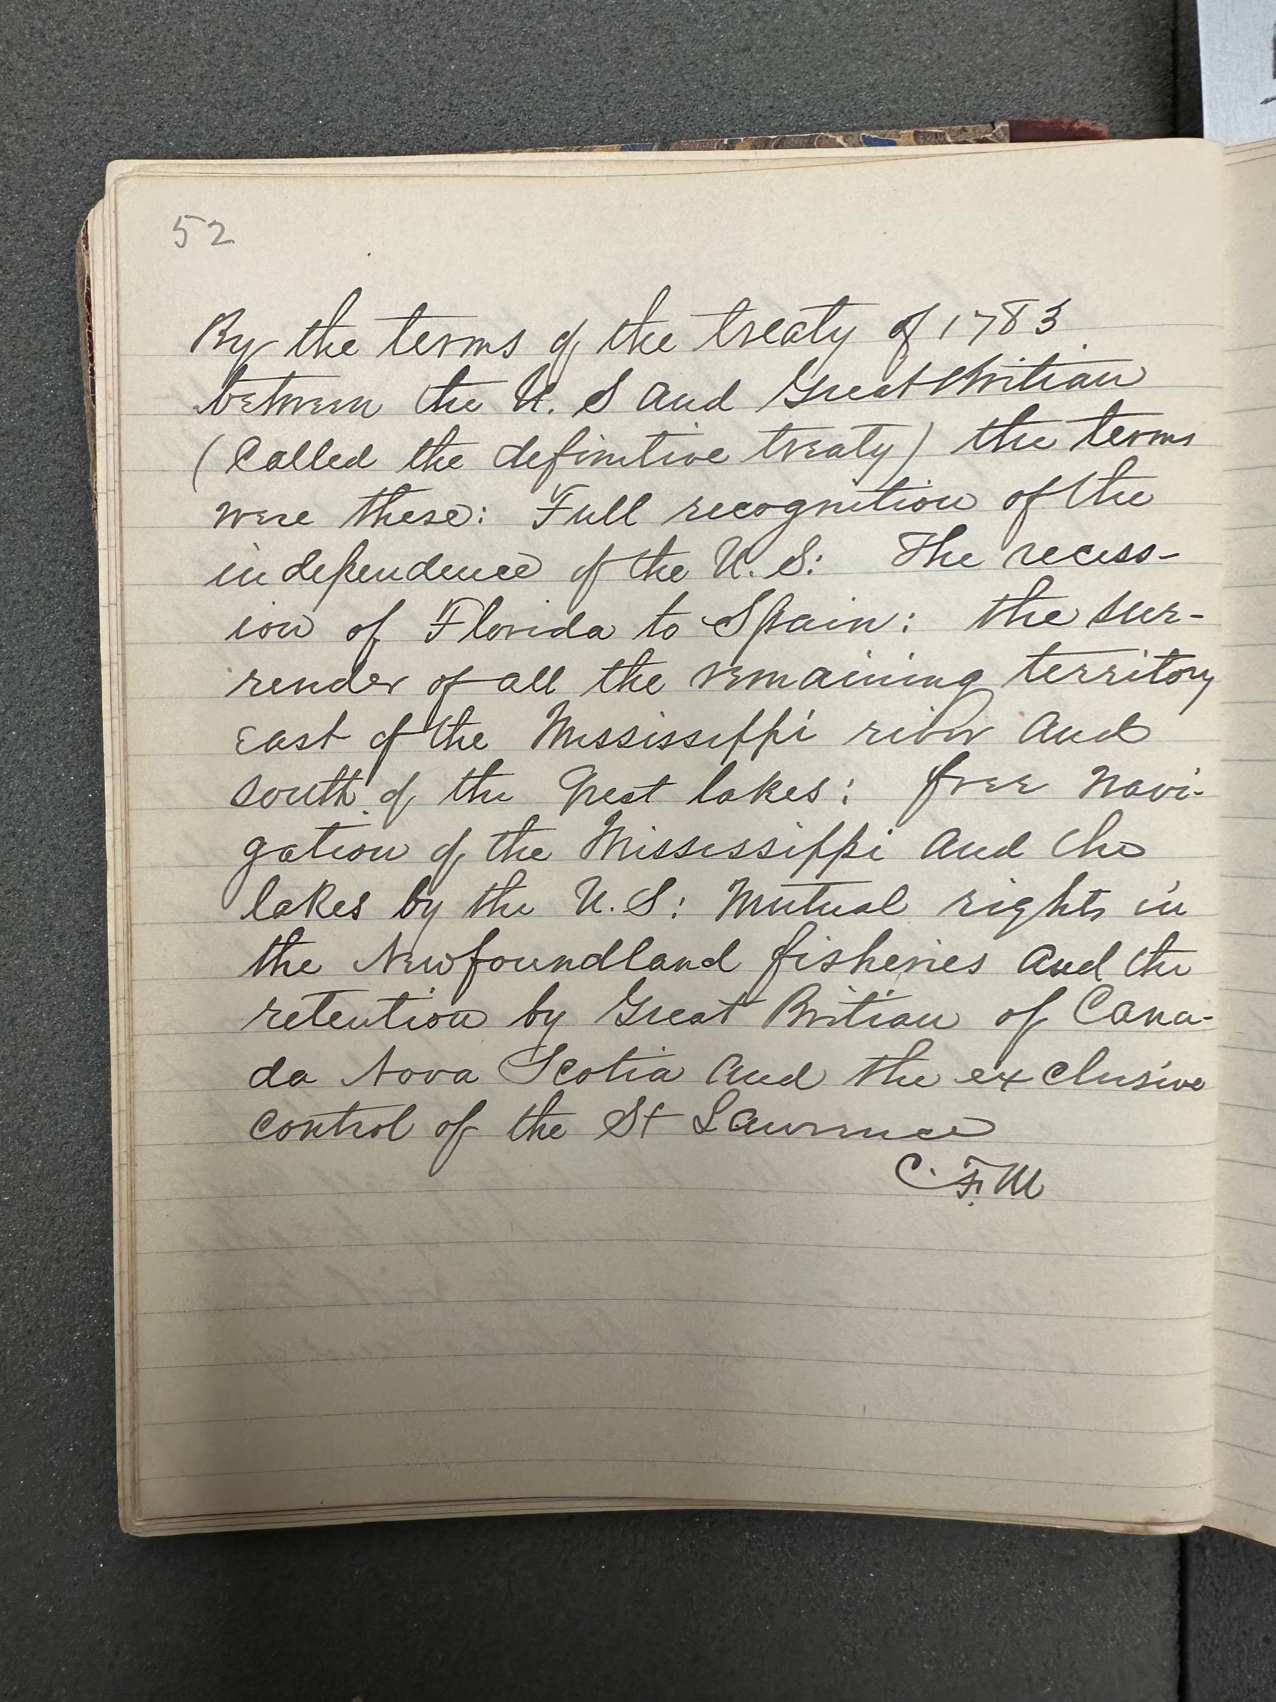 52
By the terms of the treaty of 1783
between the U. S and Great Britian
(Called the definitive treaty) the terms
were these: Full recognition of the
independence of the U. S: The recess-
ion of Florida to Spain: the sur-
render of all the remaining territory
East of the Mississippi river and
south of the great lakes: free navi-
gation of the Mississippi and the
lakes by the U. S: Mutual rights in
the Newfoundland fisheries and the
retention by Great Britian of Cana-
da Nova Scotia and the exclusive
control of the St Lawrence
C. F. M